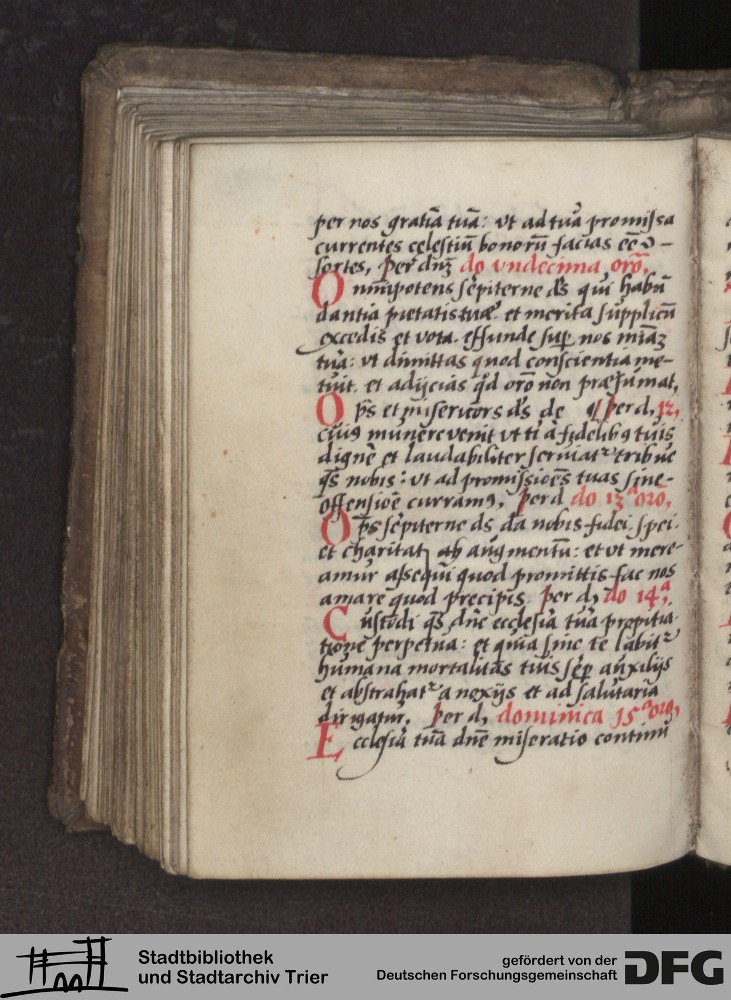 per nos gratiā tuā: vt ad tua promissa
currentes celestiū bonorū facias eē
sortes, per dnꝫ do vndecima, orō,
Omnipotens sēpiterne ds qui habū
dantia pietatis tuæ et merita supplicū
excedis et vota. effunde suꝑ nos miāꝫ
tuā: vt dimittas quod conscientia me-
tuit. et adijcias qd orō non præsumat,
Op̄s et misericors ds de per d, 12,
cuiꝰ munere venit vt ti a fidelibꝰ tuis
dignè et laudabiliter seruiatᷣ tribue
qs nobis: vt ad promissiōes tuas sine
offensiōe curramꝰ, per d do 13ᵃ orō,
Op̄s sēpiterne ds da nobis fidei. spei.
et charitatꝭ augmentū: et vt mere-
amur assequi quod promittis fac nos
amare quod precipis. per d, do 14ᵃ,
Custodi qs dne ecclesiā tuā propitia-
tione perpetua: et quia sine te labitᷣ
humana mortalitas tuis sēꝑ auxilijs
et abstrahatᷣ a noxijs et ad salutaria
dirigatur, per d, dominica 15ᵃ orō,
Ecclesiā tuā dne miseratio continu
Stadtbibliothek
und Stadtarchiv Trier
gefördert von der
Deutschen Forschungsgemeinschaft
DFG